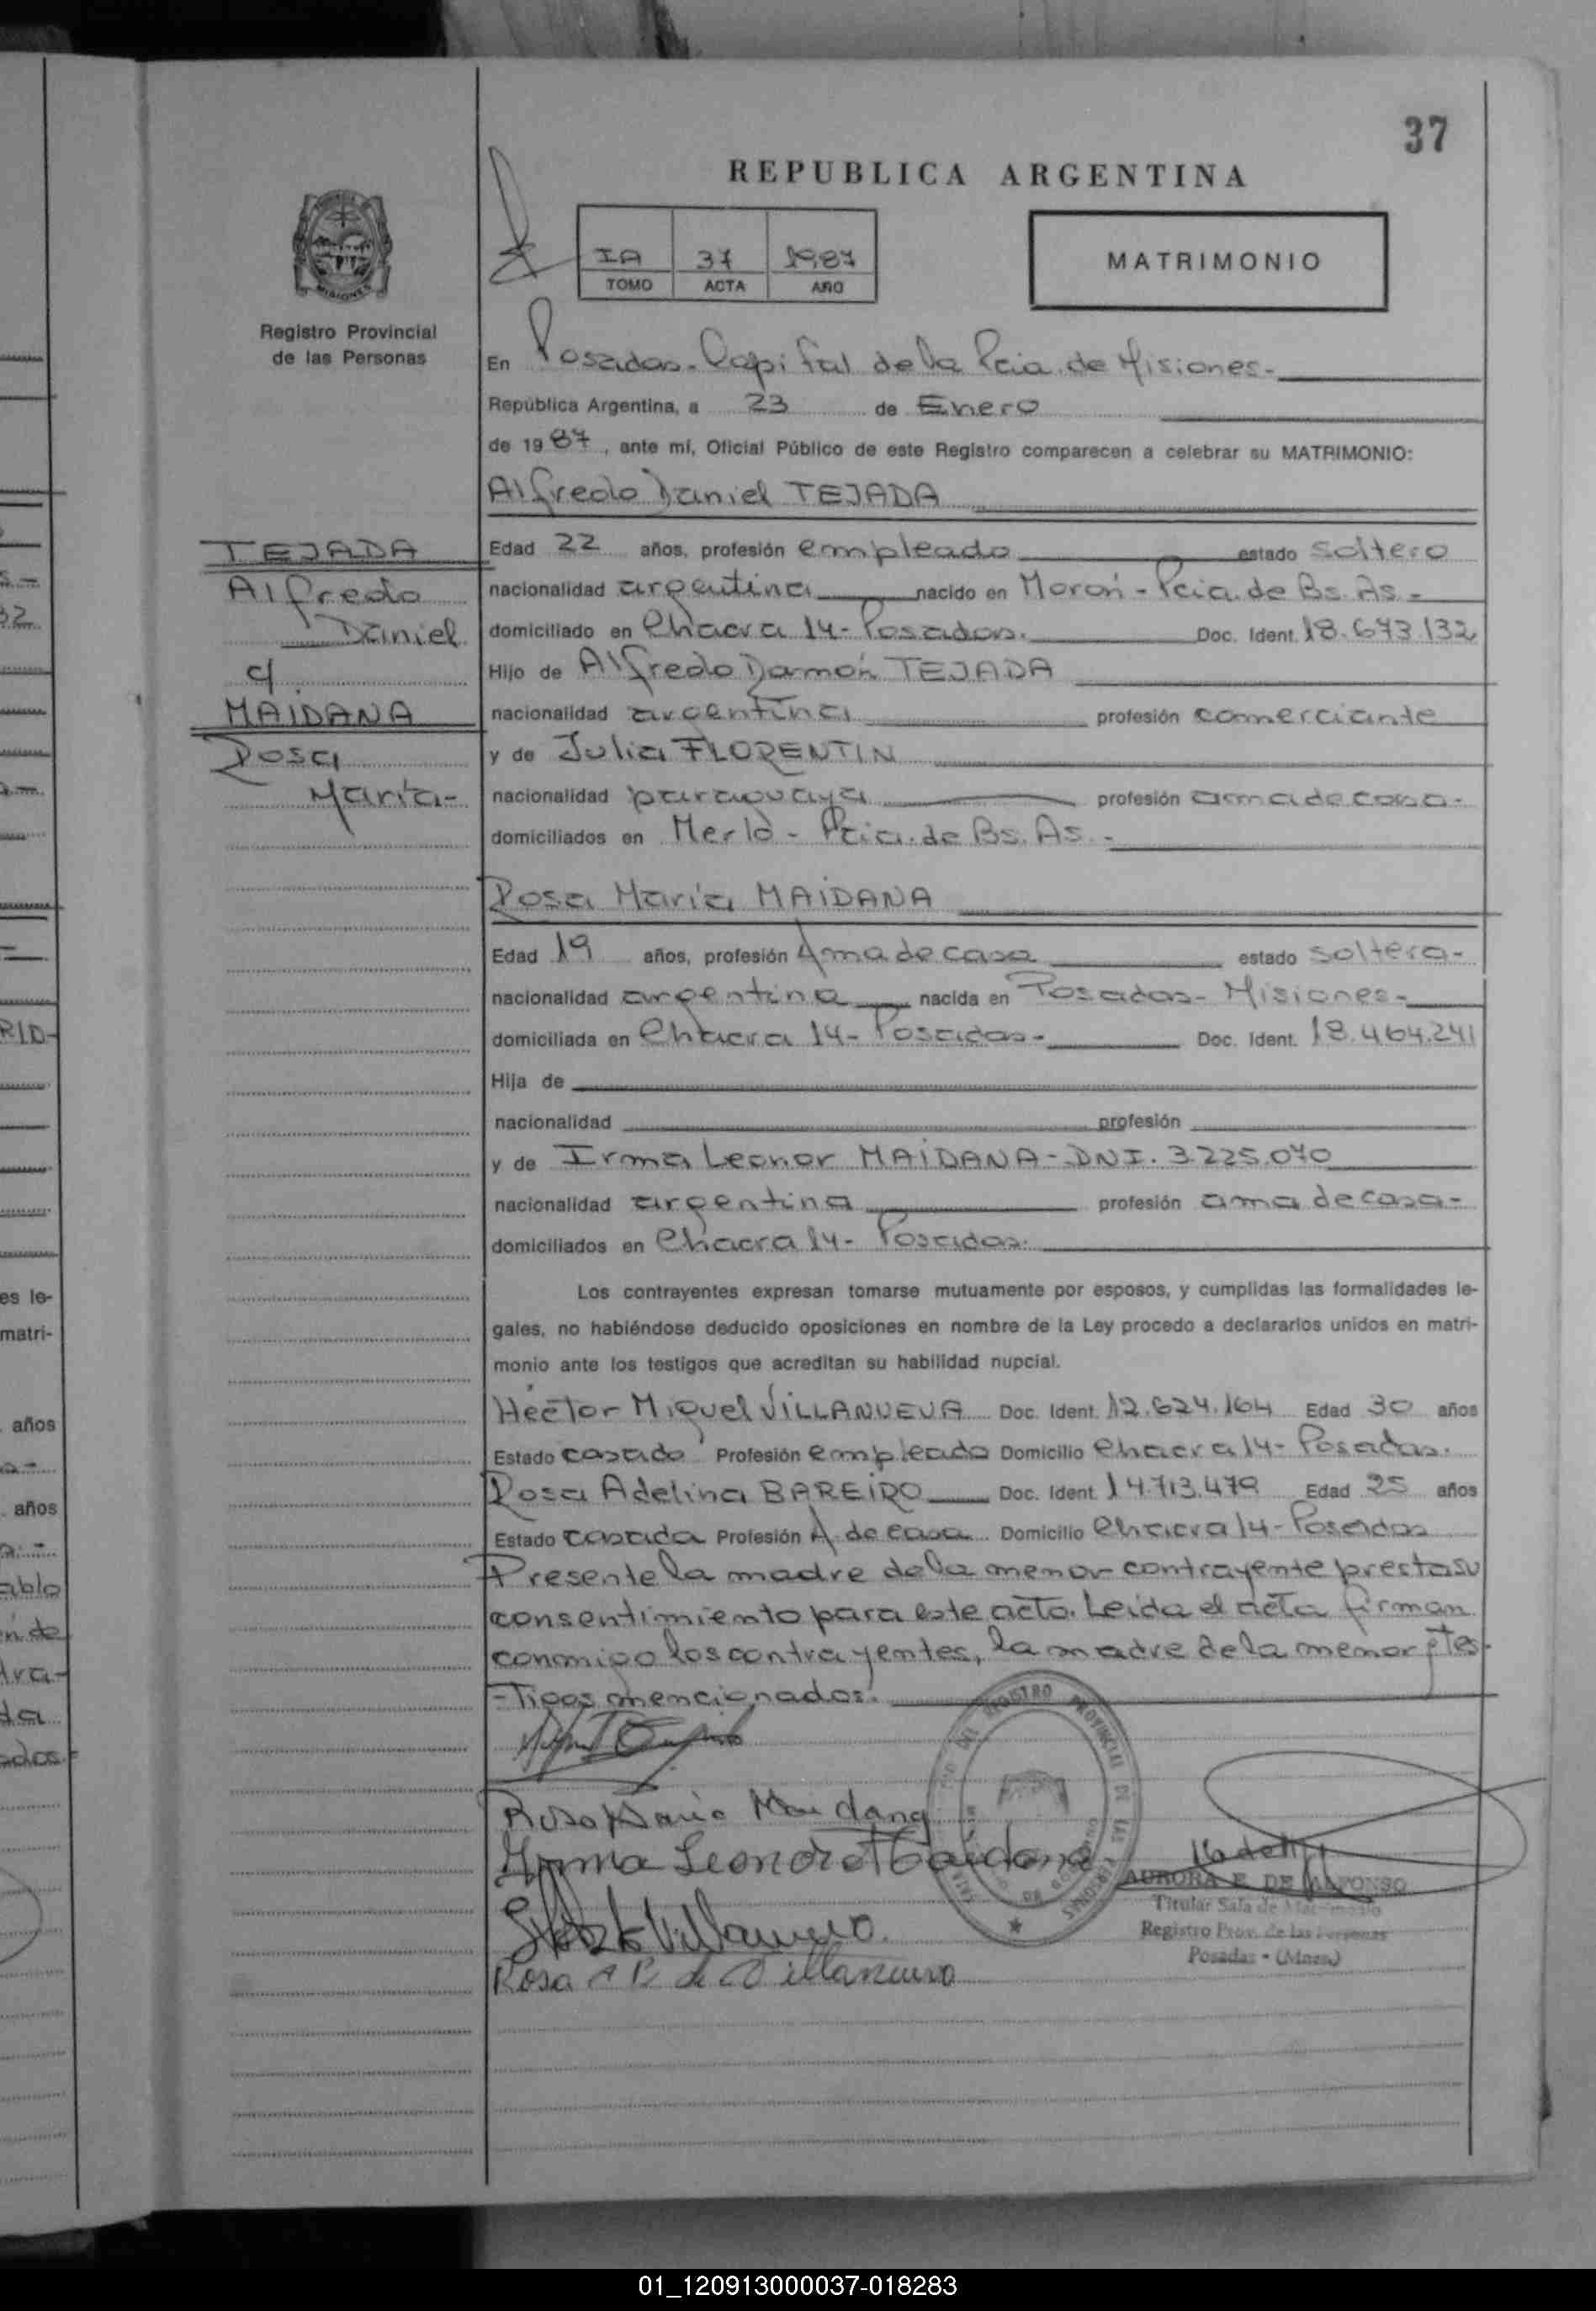 37
REPUBLICA ARGENTINA
MISIONES
Registro Provincial
de las Personas
IA 37 1987
TOMO ACTA AÑO
MATRIMONIO
En Posadas-Capital de la Pcia. de Misiones-
República Argentina, a 23 de Enero
de 1987, ante mí, Oficial Público de este Registro comparecen a celebrar su MATRIMONIO:
Alfredo Daniel TEJADA
TEJADA
Alfredo
Daniel
c/
MAIDANA
Rosa
María-
Edad 22 años, profesión empleado estado soltero
nacionalidad argentina nacido en Morón-Pcia. de Bs. As.-
domiciliado en Chacra 14-Posadas. Doc. Ident. 18.673.132
Hijo de Alfredo Ramón TEJADA
nacionalidad argentina profesión comerciante
y de Julia FLORENTIN
nacionalidad paraguaya profesión ama de casa-
domiciliados en Merlo-Pcia. de Bs. As.-
Rosa María MAIDANA
Edad 19 años, profesión Ama de casa estado soltera-
nacionalidad argentina nacida en Posadas-Misiones-
domiciliada en Chacra 14-Posadas- Doc. Ident. 18.464.241
Hija de
nacionalidad profesión
y de Irma Leonor MAIDANA-DNI. 3.225.070
nacionalidad argentina profesión ama de casa-
domiciliados en Chacra 14-Posadas.
Los contrayentes expresan tomarse mutuamente por esposos, y cumplidas las formalidades le-
gales, no habiéndose deducido oposiciones en nombre de la Ley procedo a declararlos unidos en matri-
monio ante los testigos que acreditan su habilidad nupcial.
Héctor Miguel VILLANUEVA Doc. Ident. 12.624.164 Edad 30 años
Estado casado Profesión empleado Domicilio Chacra 14-Posadas.
Rosa Adelina BAREIRO Doc. Ident. 14.713.479 Edad 25 años
Estado casada Profesión A. de casa Domicilio Chacra 14-Posadas
Presente la madre de la menor contrayente presta su
consentimiento para este acto. Leída el acta firman
conmigo los contrayentes, la madre de la menor y tes-
-tigos mencionados.
Rosa María Maidana
Irma Leonor Maidana
Villanueva
Rosa A B de Villanueva
REGISTRO PROVINCIAL DE LAS PERSONAS
AURORA E. DE ALFONSO
Titular Sala de Matrimonio
Registro Prov. de las Personas
Posadas - (Mnes.)
RIO-
es le-
matri-
años
años
01_120913000037-018283